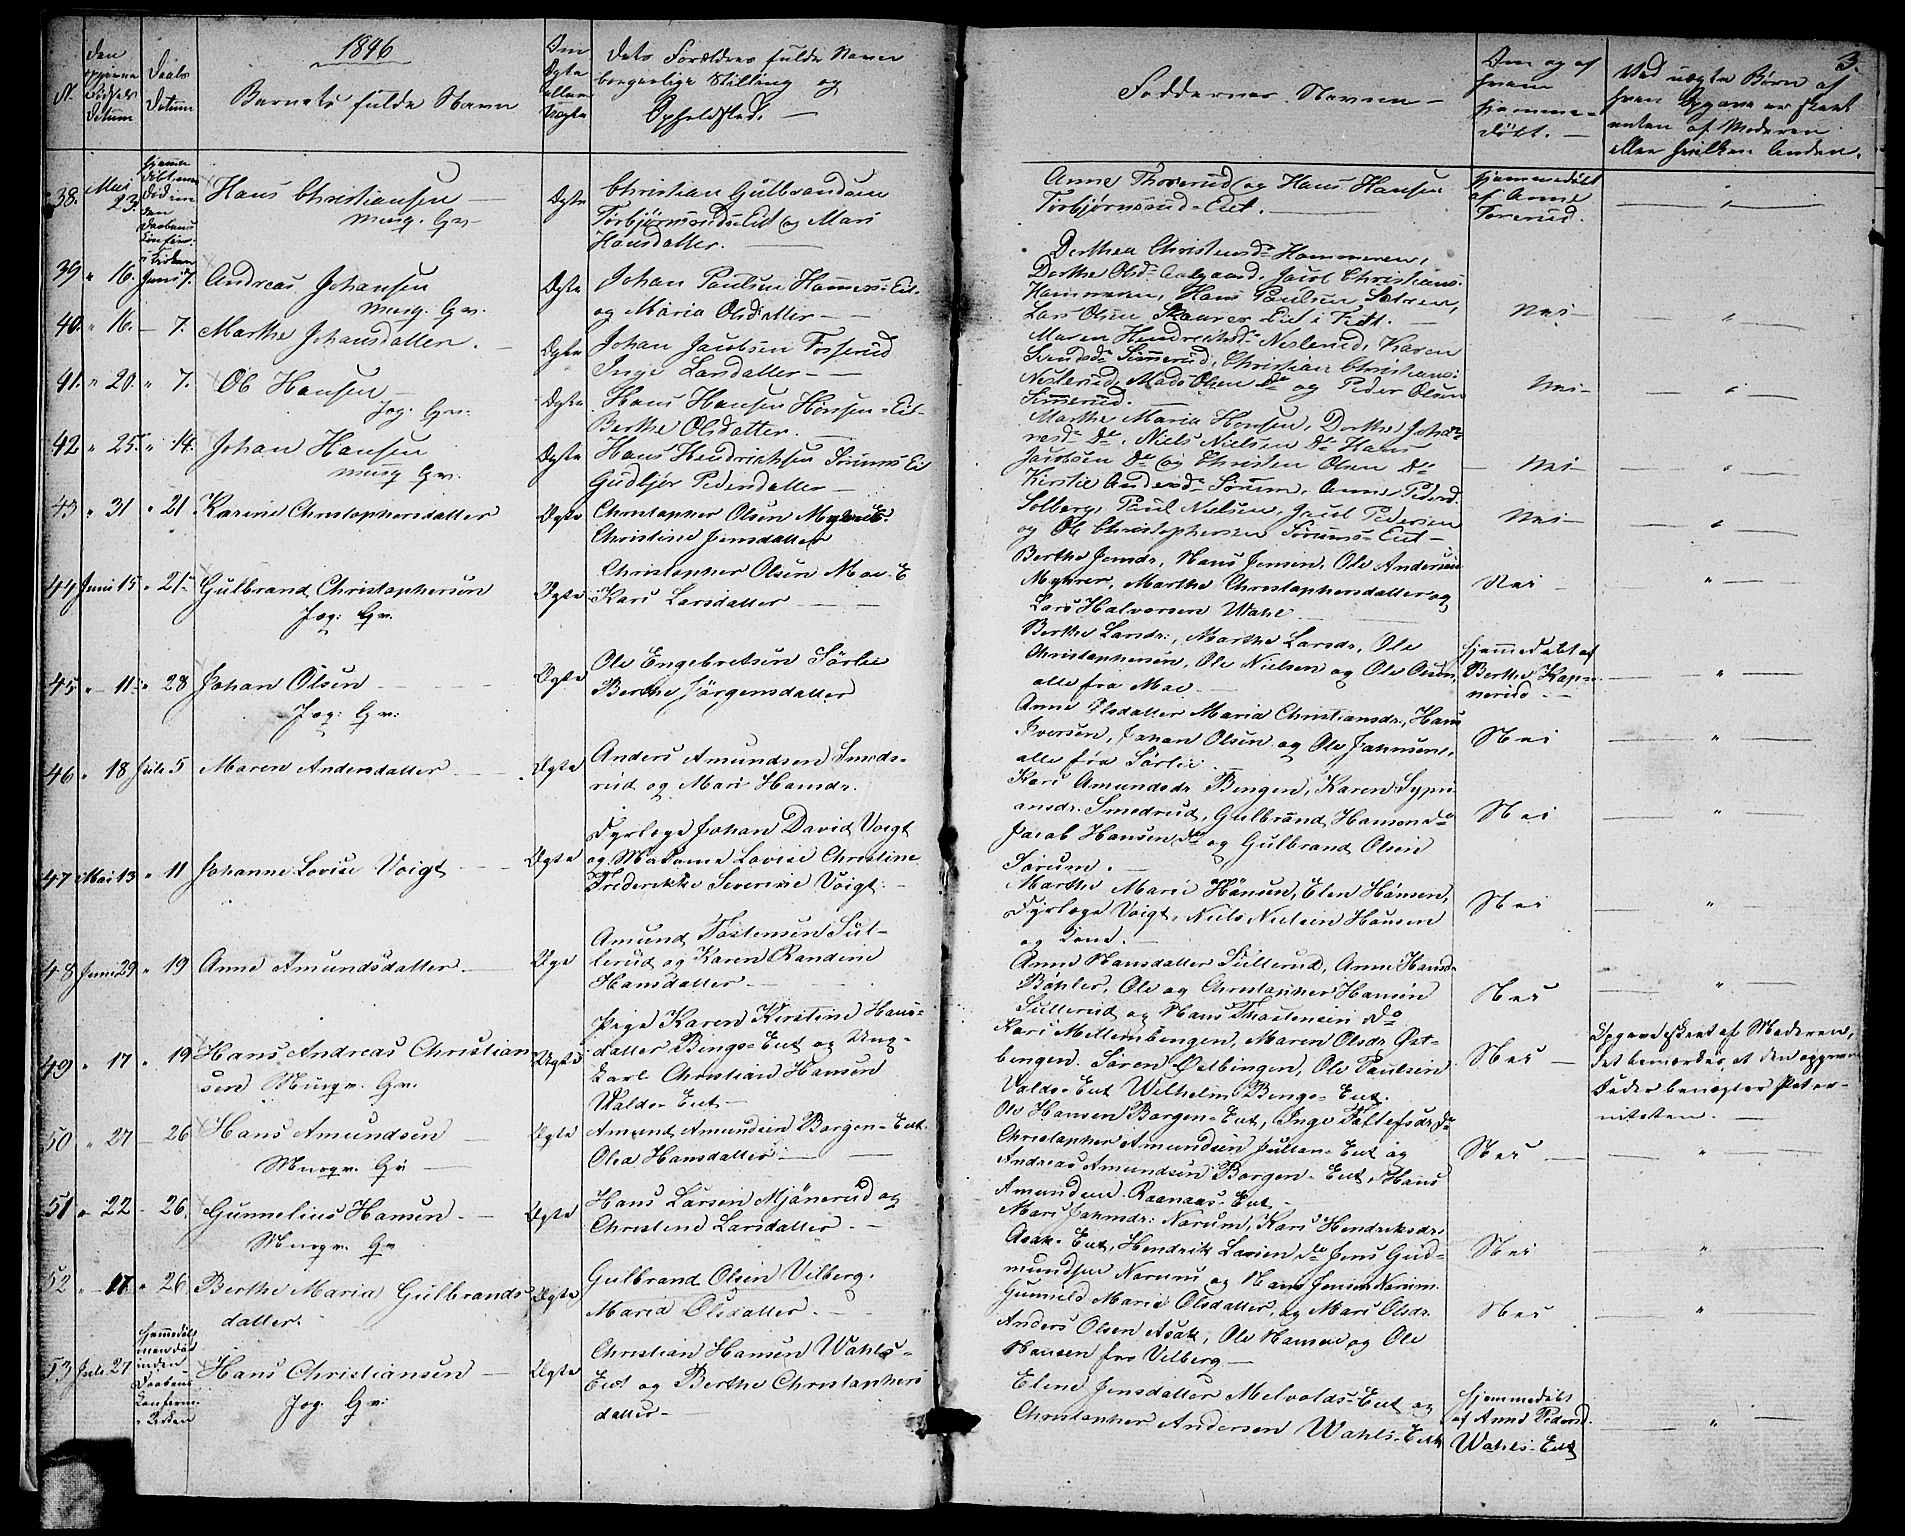 3.
1846
N.
Den opgivne Fødsels Datum
Daabs Datum
Barnets fulde Navn
Om Ægte eller Uægte
Dets Forældres fulde Navn
borgerlige Stilling og
Opholdsted. —
Faddernes Navne —
Om og af
hvem
hjemme-
døbt. —
Ved uægte Børn af
hvem Opgave er skeet
enten af Moderen
eller hvilken Anden.
38. Mai 23. Hans Christiansen —
Ægte
Christian Gulbrandsen
Torbjørnsruds-Eiet og Mari
Hansdatter. —
Anne Thorerud og Hans Hansen
Torbjørnsrud-Eiet. —
hjemmedøbt
af Anne
Torerud.
39 " 16. Juni 7. Andreas Johansen
Ægte
Johan Paulsen Hammers-Eiet
og Maria Olsdatter — —
Dorthea Christensd. Hammeren,
Dorthe Olsd. Aalgaard, Jacob Christians.
Hammeren, Hans Paulsen Sætren,
Lars Olsen Skaurer Eiet i Fedt. —
Nei —
40. " 16. — 7. Marthe Johansdatter. —
Ægte
Johan Jacobsen Fosserud
Inge Larsdatter — —
Maren Hendrichsd. Neslerud, Karen
Simmerud, Christian Christians:
Neslerud, Mads Olsen Do og Peder Olsen
Simmerud. —
Nei —
41. " 20. " 7. Ole Hansen —
Jog. Gr.
Ægte
Hans Hansen Hønsen-Eiet
Berthe Olsdatter. —
Marthe Maria Hønsen, Dorthe Johan-
nesd. Do, Niels Nielsen Do Hans
Jacobsen Do og Christen Olsen Do
Nei
42 " 25. " 14. Johan Hansen
Ægte
Hans Hendrichsen Sørums-Eiet
Gudbjør Pedersdatter —
Kirstie Andersd. Sørum, Anne Pedersd.
Solberg, Paul Nielsen, Jacob Pedersen
og Ole Christophersen Sørums-Eiet —
Nei —
43 " 31 " 21 Karine Christophersdatter
Ægte
Christopher Olsen Myhrer E.
Christine Jensdatter
Berthe Jensdr, Hans Jensen, Ole Andersen
Myhrer, Marthe Christophersdatter og
Lars Halvorsen Wahl
Nei —
44 Juni 15 " 21 Gulbrand Christophersen
Jog: Gr.
Ægte
Christopher Olsen Moe-E
Kari Larsdatter — —
Berthe Larsdr., Marthe Larsdr, Ole
Christophersen, Ole Nielsen og Ole Olsen,
alle fra Moe —
hjemmedøbt af
Berthe Kop-
nerud —
45 " 11 " 28 Johan Olsen
Jog: Gr:
Ægte
Ole Engebretsen Sørlie
Berthe Jørgensdatter
Anne Olsdatter Maria Christiansdr, Hans
Iversen, Johan Olsen og Ole Jahnsen,
alle fra Sørlie —
Nei
46 " 18 Juli 5 Maren Andersdatter
Ægte
Anders Amundsen Smeds-
rud og Mari Hansdr.
Kari Amundsdr Bingen, Karen Sypri
ansdr. Smedsrud, Gulbrand Hansen do
Jacob Hansen do og Gulbrand Olsen
Sørum. —
Nei
47 Mai 13 " 11 Johanne Lovise Voigt —
Ægte
Dyrlæge Johan David Voigt
og Madame Lovise Christine
Frederikke Severine Voigt. —
Marthe Marie Hönsen, Elen Hönsen,
Dyrlæge Voigt, Niels Nielsen Hönsen
og Kone. —
Nei
48 Juni 29 " 19 Anne Amundsdatter. —
Amund Tostensen Sul-
lerud og Karen Randine
Hansdatter —
Anne Hansdatter Sullerud, Anne Hansd
Böhler, Ole og Christopher Hansen
Sullerud og Hans Thostensen do
Nei
49 " 17 " 19 Hans Andreas Christian
sen
Uægte
Pige Karen Kirstine Hans-
datter Binges-Eiet og Ung-
karl Christian Hansen
Walds-Eiet —
Kari Mellembingen, Maren Olsdr Øst-
bingen. Søren Østbingen, Ole Paulsen
Valds-Eiet Wilhelm Binges-Eiet.
Nei —
Opgave skeet af Moderen,
det bemærkes, at den opgivne
Fader benægter Pater-
niteten. —
50 " 27 — 26 Hans Amundsen —
Ægte
Amund Amundsen Borgen-Eiet.
Olea Hansdatter — —
Ole Hansen Borgen-Eiet, Inge Tollefsdr do
Christopher Amundsen Julton-Eiet og
Andreas Amundsen Borgen-Eiet, Hans
Amundsen Raanaas-Eiet —
Nei —
51 " 22 - 26. Gunnelius Hansen. —
Ægte
Hans Larsen Mjönerud og
Christine Larsdatter. —
Mari Jahnsdr: Narum, Kari Hendriksdr.
Asak-Eiet, Hendrik Larsen do Jens Gud-
mundsen Narum og Hans Jensen Narum
Nei
52 " 17 " 26 Berthe Maria Gulbrands
datter.
Ægte
Gulbrand Olsen Vilberg.
Maria Olsdatter. —
Gunnild Marie Olsdatter, og Mari Olsdr.
Anders Olsen Asak, Ole Hansen og Ole
Hansen fra Vilberg —
Nei
53 Juli 27 Hans Christiansen —
Jog. Gr.
Ægte
Christian Hansen Wahls-
Eiet og Berthe Christophers
datter —
Elene Jensdatter Melvolds-Eiet og
Christopher Andersen Wahls-Eiet
hjemmedöbt
af Anne Pedersd.
Wahls-Eiet